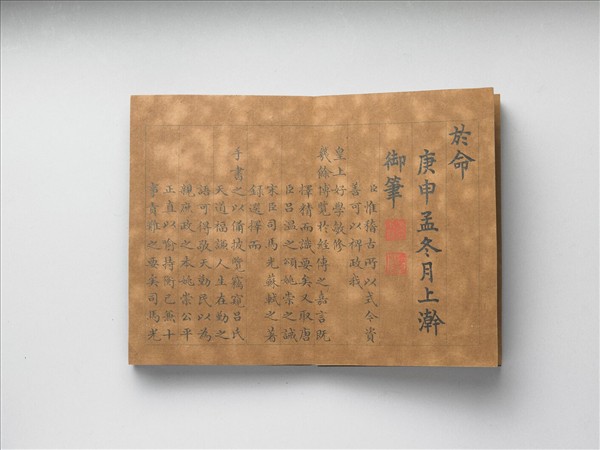 於命
庚申孟冬月上澣
御筆
臣惟稽古所以式今資
善可以裨政我
皇上好學敏修
幾餘博覽於經傳之嘉言既
擇精而識要矣又取唐
臣呂溫之頌姚崇之誡
宋臣司馬光蘇軾之著
錄選擇而
手書之以備披覽竊窺呂氏
天道福謙人生在勤之
語可得敬天勤民以為
親庶政之本姚崇公平
正直以喻持衡已無十
事責難之要矣司馬光